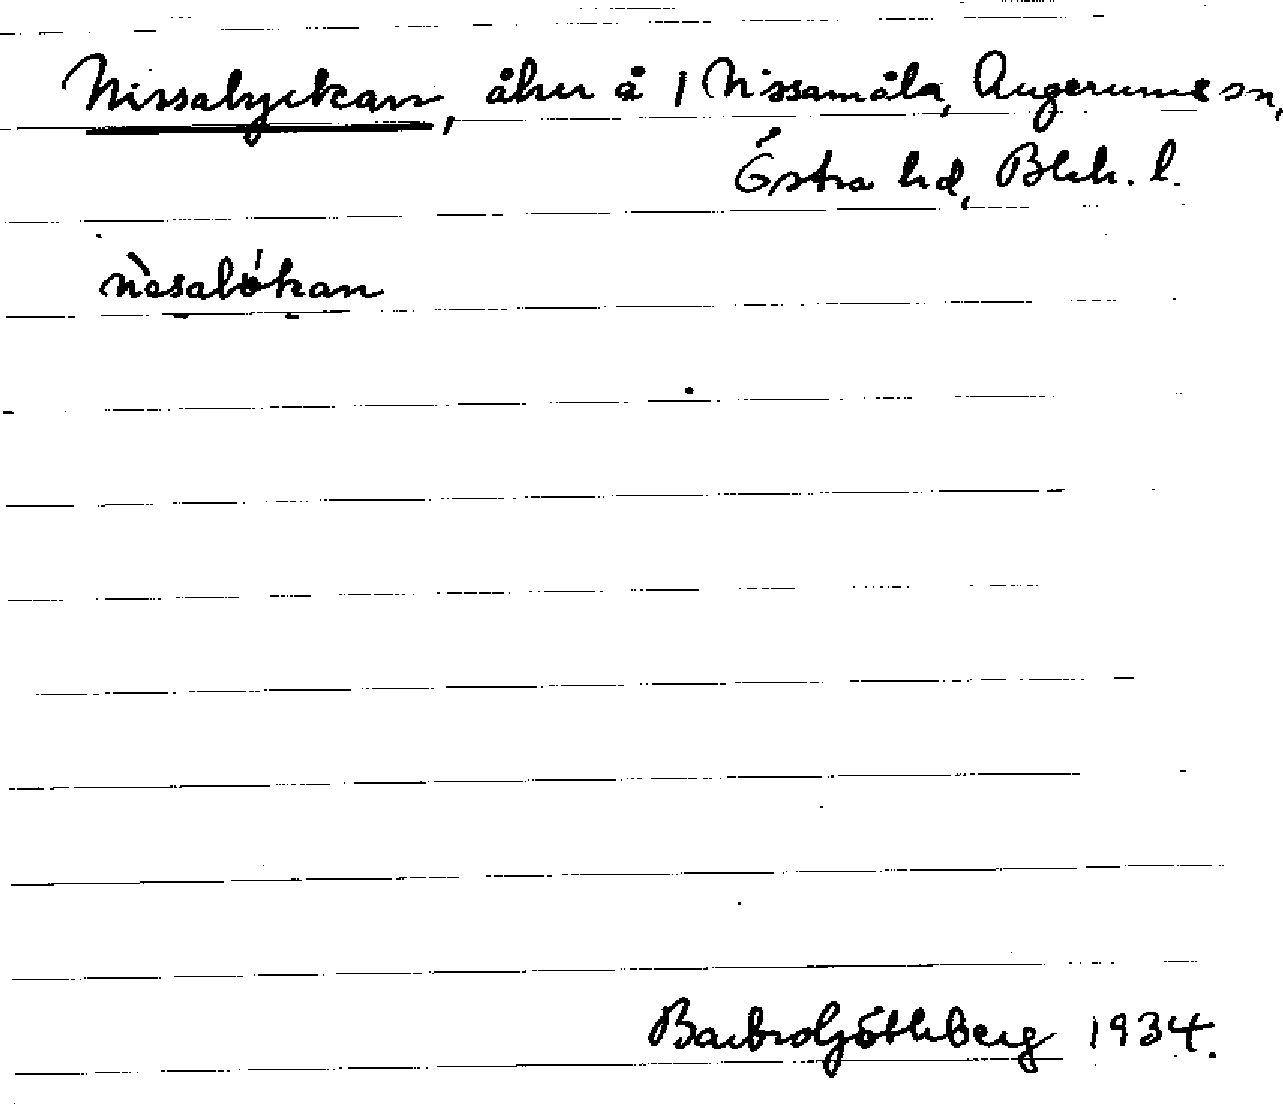 Nissalyckan, åker å 1 Nissamåla, Augerums sn,
Östra hd, Blek. l.
nìsalókan
Barbro Göthberg 1934.